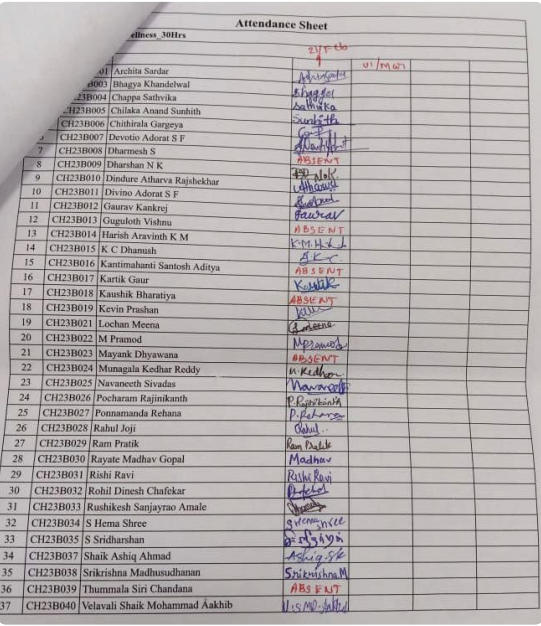 Attendance Sheet
ellness_30Hrs
21/Feb
01/Mar
01 Archita Sardar
B003 Bhagya Khandelwal Bhagya
23B004 Chappa Sathvika Sathvika
CH23B005 Chilaka Anand Sunhith Sunhith
CH23B006 Chithirala Gargeya
6 CH23B007 Devotio Adorat S F
7 CH23B008 Dharmesh S ABSENT
8 CH23B009 Dharshan N K N.K.
9 CH23B010 Dindure Atharva Rajshekhar Atharva
10 CH23B011 Divino Adorat S F
11 CH23B012 Gaurav Kankrej Gaurav
12 CH23B013 Guguloth Vishnu ABSENT
13 CH23B014 Harish Aravinth K M K.M.H
14 CH23B015 K C Dhanush
15 CH23B016 Kantimahanti Santosh Aditya ABSENT
16 CH23B017 Kartik Gaur Kartik
17 CH23B018 Kaushik Bharatiya ABSENT
18 CH23B019 Kevin Prashan
19 CH23B021 Lochan Meena Lmeena
20 CH23B022 M Pramod MPramod
21 CH23B023 Mayank Dhyawana ABSENT
22 CH23B024 Munagala Kedhar Reddy M.Kedhar
23 CH23B025 Navaneeth Sivadas Navaneeth
24 CH23B026 Pocharam Rajinikanth P.Rajinikanth
25 CH23B027 Ponnamanda Rehana P.Rehana
26 CH23B028 Rahul Joji Rahul
27 CH23B029 Ram Pratik Ram Pratik
28 CH23B030 Rayate Madhav Gopal Madhav
29 CH23B031 Rishi Ravi Rishi Ravi
30 CH23B032 Rohil Dinesh Chafekar
31 CH23B033 Rushikesh Sanjayrao Amale
32 CH23B034 S Hema Shree S Hema Shree
33 CH23B035 S Sridharshan
34 CH23B037 Shaik Ashiq Ahmad Ashiq.Sk
35 CH23B038 Srikrishna Madhusudhanan Srikrishna.M
36 CH23B039 Thummala Siri Chandana ABSENT
37 CH23B040 Velavali Shaik Mohammad Aakhib V.S.MD.Aakhib